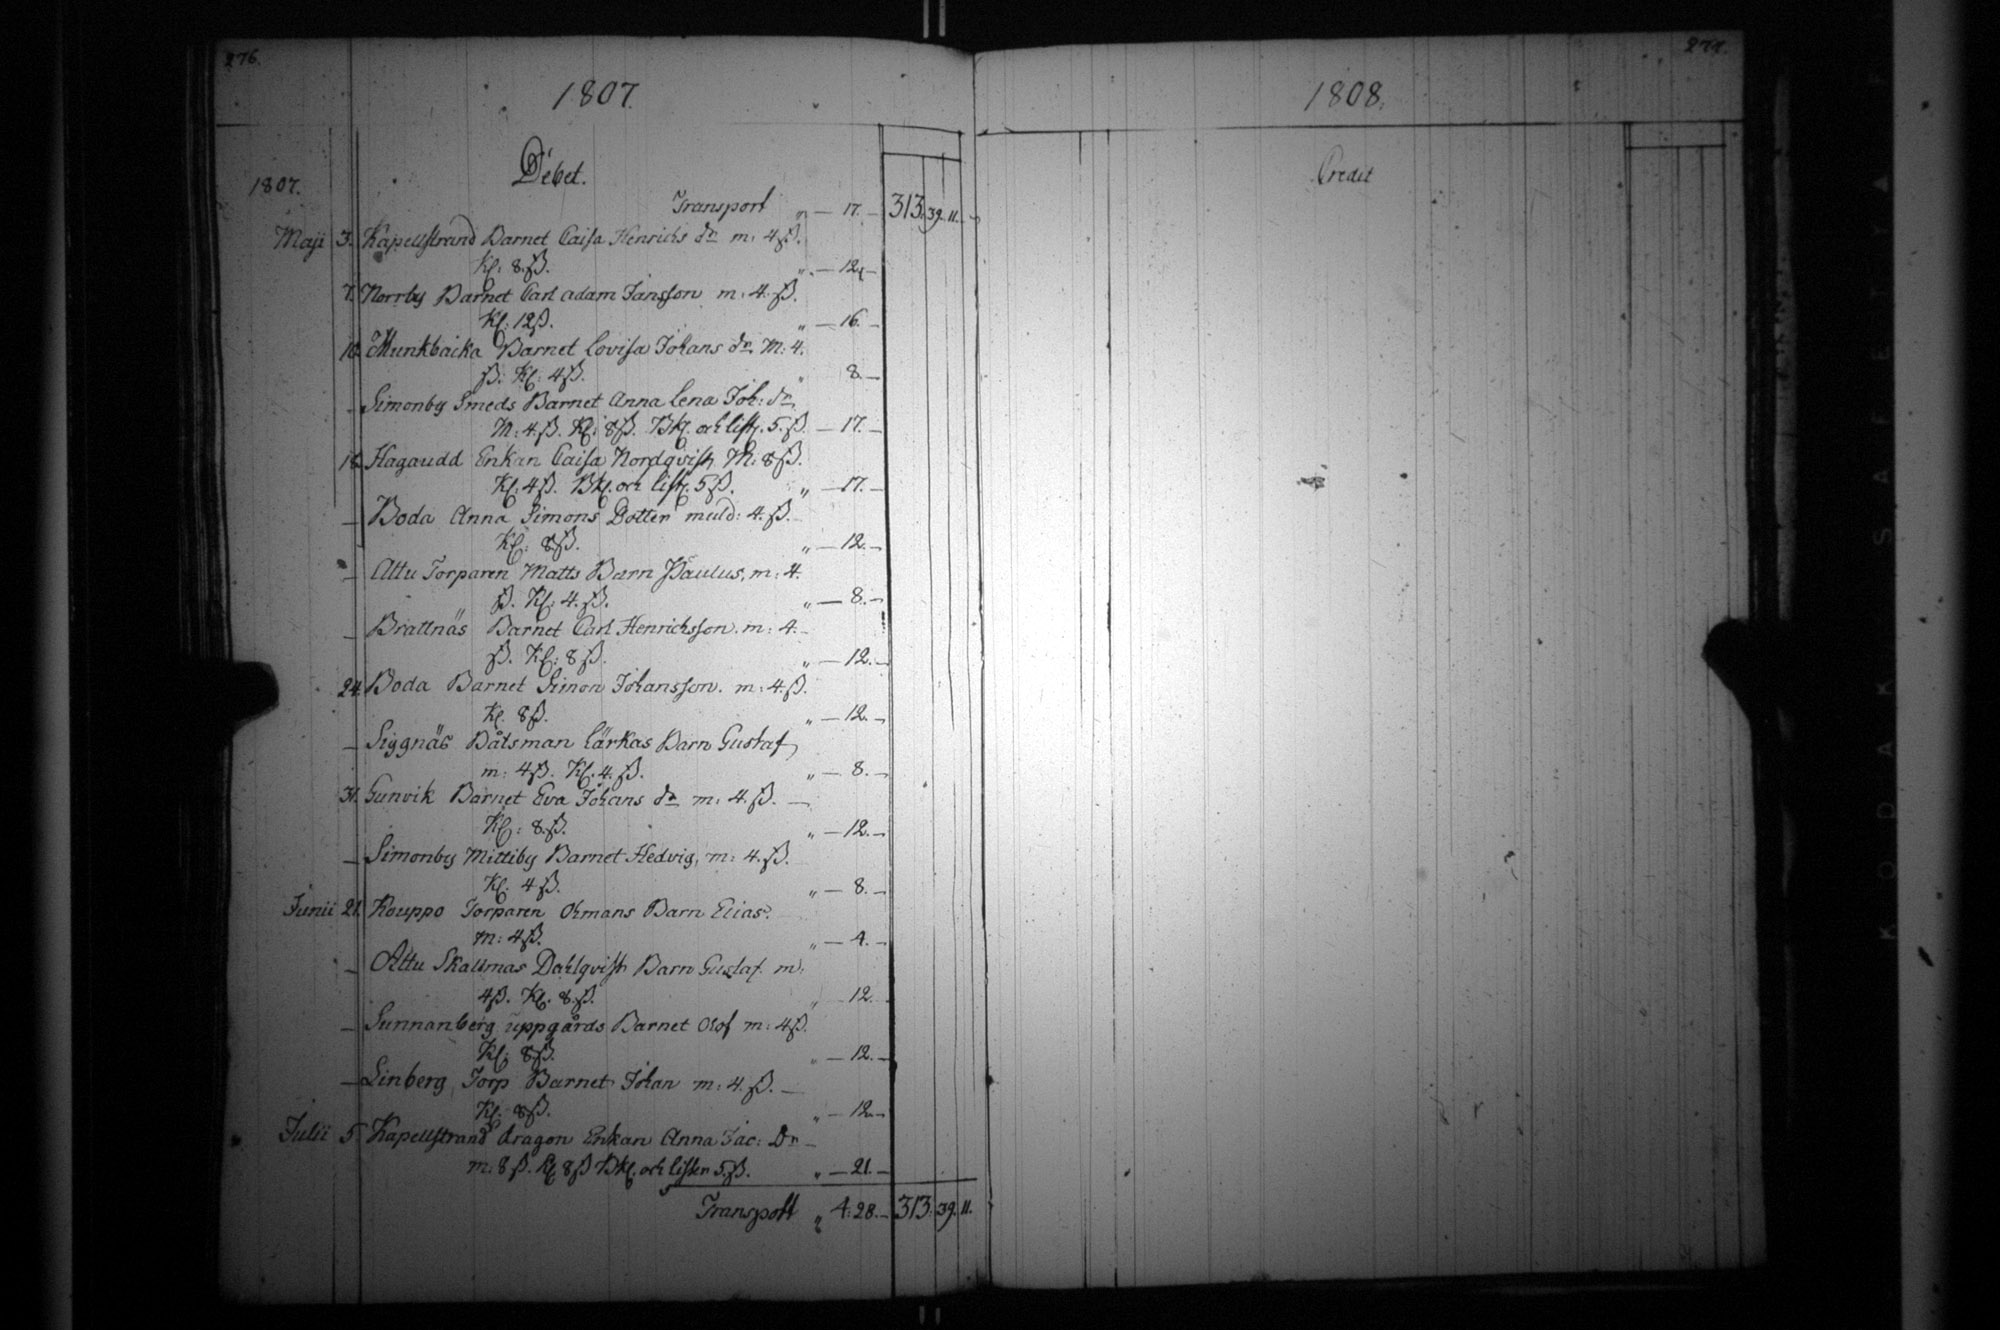 276.
1807.
Debet.
1807.
Transport „ — 17. — 313. 39. 11.
Maji 3. Kapellstrand Barnet Caisa Henrichs dr m: 4 ß.
Kl: 8. ß. „ — 12. —
7. Norrby Barnet Carl Adam Jansson m: 4. ß.
Kl: 12 ß. „ — 16. —
10. Munkbacka Barnet Lovisa Johans dr M: 4.
ß. Kl: 4 ß. „ 8. —
— Simonby Smeds Barnet Anna Lena Joh: dr
M: 4. ß. Kl: 8 ß. Bkl. och list. 5. ß. — 17. —
18. Hagaudd Enkan Caisa Nordqvist M: 8 ß.
Kl: 4 ß. Bkl. och list. 5 ß. „ — 17. —
— Boda Anna Simons Dotter muld: 4. ß.
Kl: 8 ß. „ — 12. —
— Attu Torparen Matts Barn Paulus, m: 4.
ß. Kl: 4. ß. „ — 8. —
— Brattnäs Barnet Carl Henrichsson. m: 4.
ß. Kl: 8 ß. „ — 12. —
24. Boda Barnet Simon Johansson. m: 4. ß.
Kl. 8 ß. „ — 12. —
— Siggnäs Båtsman Lärkas Barn Gustaf
m: 4 ß. Kl: 4. ß. „ — 8. —
31. Gunvik Barnet Eva Johans dr m: 4. ß. —
Kl: 8. ß. „ — 12. —
— Simonby Mittiby Barnet Hedvig, m: 4. ß.
Kl. 4 ß. „ — 8. —
Junii 21. Kouppo Torparen Ohmans Barn Elias.
m: 4 ß. „ — 4. —
— Attu Skallmas Dahlqvist Barn Gustaf. m:
4 ß. Kl. 8. ß. „ 12. —
— Sunnanberg uppgårds Barnet Olof m: 4 ß.
Kl: 8 ß. „ — 12. —
— Linberg Torp Barnet Johan m: 4. ß. —
Kl: 8 ß. „ — 12. —
Julii 5 Kapellstrand dragon Enkan Anna Jac: Dr —
m: 8 ß. Kl 8 ß Bkl. och listen 5. ß. „ — 21. —
Transport „ 4: 28. — 313. 39. 11.
277.
1808.
Credit
KODAK SAFETY